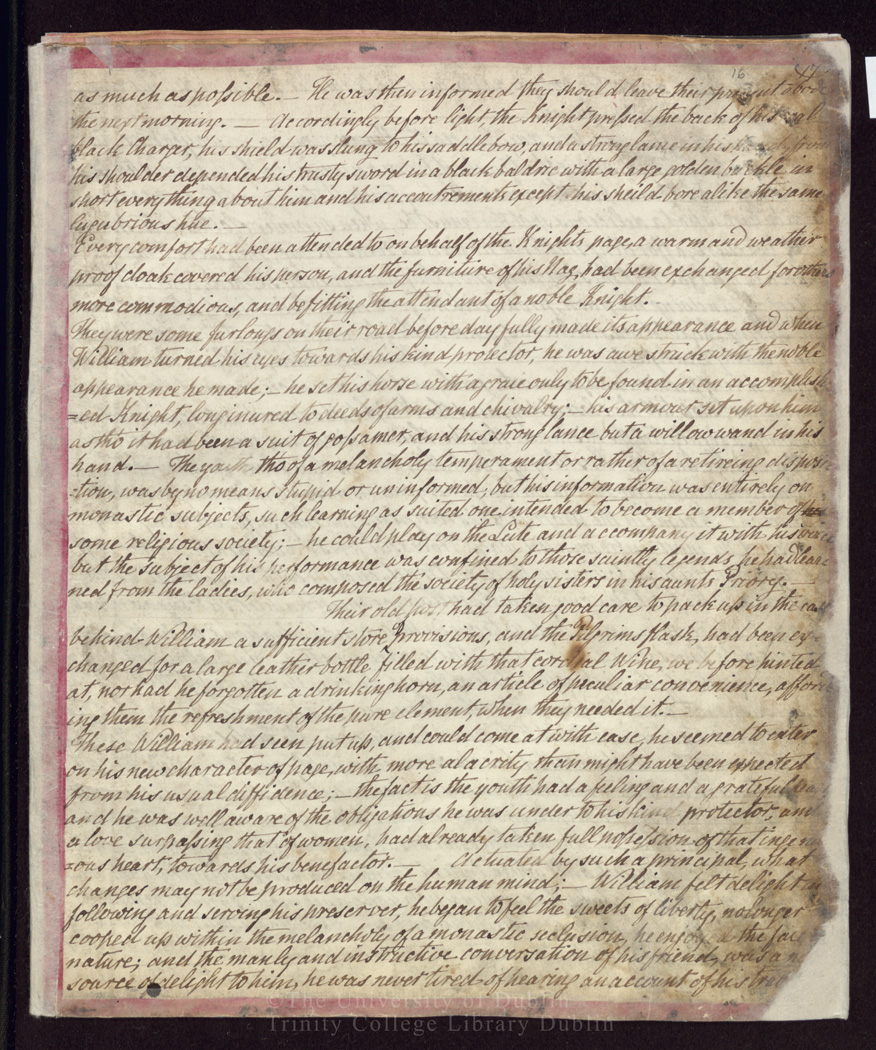 16
as much as possible. — He was then informed they should leave their present abode
the next morning. — Accordingly before light the Knight pressed the back of his coal
black Charger, his shield was slung to his saddle bow, and a strong lance in his from
his shoulder depended his trusty sword in a black baldric with a large golden buckle, in
short every thing about him and his accoutrements except his sheild bore alike the same
lugubrious hue. —
Every comfort had been attended to on behalf of the Knights page, a warm and weather
proof cloak covered his person, and the furniture of his Nag, had been exchanged for others
more commodious, and befitting the attendant of a noble Knight.
They were some furlongs on their road before day fully made its appearance and when
William turned his eyes towards his kind protector, he was awe struck with the noble
appearance he made; — he set his horse with a grace only to be found in an accomplish
=ed Knight, long inured to deeds of arms and chivalry; — his armour set upon him
as tho' it had been a suit of gossamer, and his strong lance but a willow wand in his
hand. — The youth tho of a melancholy temperament or rather of a retireing disposi
-tion, was by no means stupid or uninformed, but his information was entirely on
monastic subjects, such learning as suited one intended to become a member of
some religious society; — he could play on the Lute and accompany it with his voice
but the subject of his performance was confined to those saintly legends he had lear
ned from the ladies, who composed the society of holy sisters in his aunts Priory. —
Their old had taken good care to pack up in the
behind William a sufficient store provisions, and the Pilgrims flask, had been ex-
changed for a large leather bottle filled with that cordial Wine, we before hinted
at, nor had he forgotten a drinking horn, an article of peculiar convenience, afford
ing them the refreshment of the pure element, when they needed it. —
These William had seen put up, and could come at with ease, he seemed to enter
on his new character of page, with more alacrity than might have been expected
from his usual diffidence; — the fact is the youth had a feeling and a grateful
and he was well aware of the obligations he was under to his kind protector, and
a love surpassing that of women, had already taken full possession of that ingenu
=ous heart, towards his benefactor. — Actuated by such a principal, what
changes may not be produced on the human mind; — William felt delight in
following and serving his preserver, he began to feel the sweets of liberty, no longer
cooped up within the melancholy of a monastic seclusion, he enjoyed the face
nature; and the manly and instructive conversation of his friend, was a
source of delight to him, he was never tired of hearing an account of his
© The University of Dublin
Trinity College Library Dublin